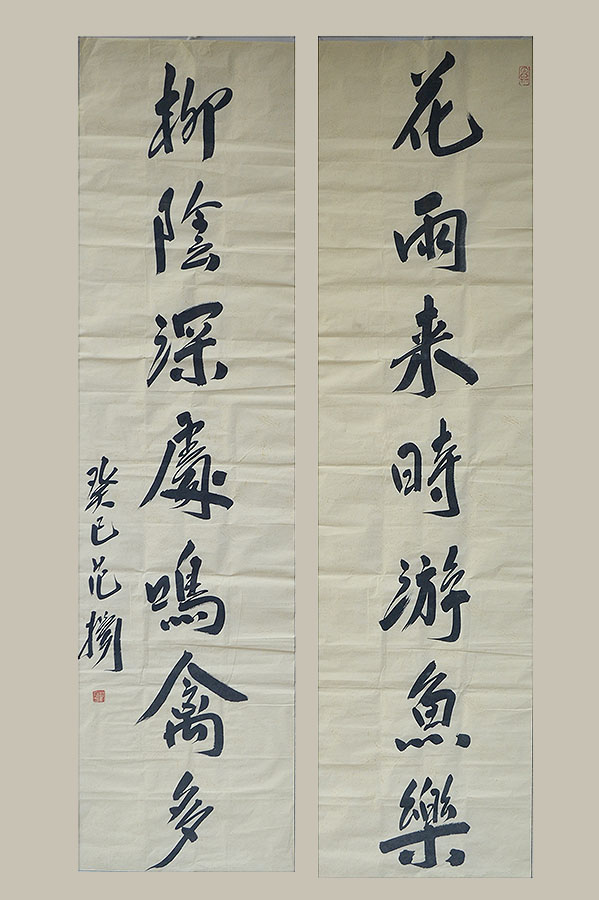 花雨来時游魚樂
柳陰深處鳴禽多
癸巳范